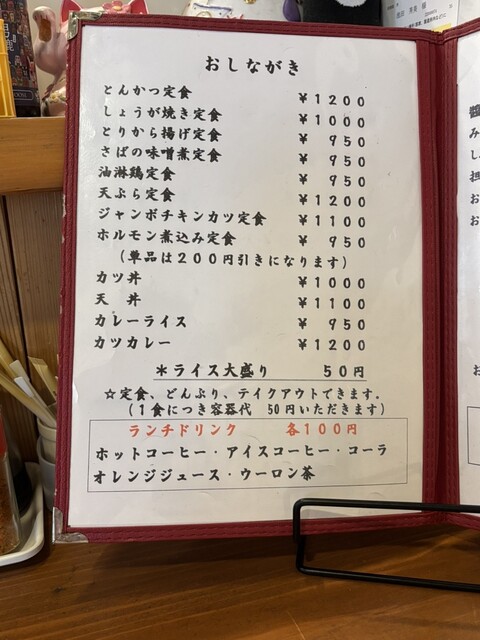 おしながき
とんかつ定食 ￥１２００
しょうが焼き定食 ￥１０００
とりから揚げ定食 ￥９５０
さばの味噌煮定食 ￥９５０
油淋鶏定食 ￥９５０
天ぷら定食 ￥１２００
ジャンボチキンカツ定食 ￥１１００
ホルモン煮込み定食 ￥９５０
（単品は２００円引きになります）
カツ丼 ￥１０００
天　丼 ￥１１００
カレーライス ￥９５０
カツカレー ￥１２００
＊ライス大盛り ５０円
☆定食、どんぶり、テイクアウトできます。
（１食につき容器代 50円いただきます）
ランチドリンク 各１００円
ホットコーヒー・アイスコーヒー・コーラ
オレンジジュース・ウーロン茶